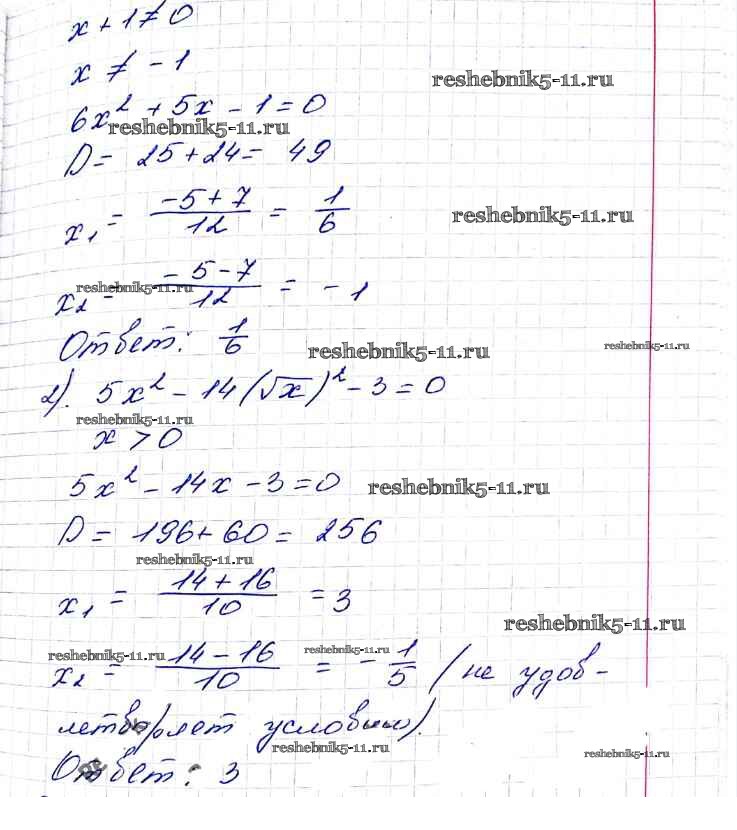 x + 1 ≠ 0
x ≠ -1
reshebnik5-11.ru
6x² + 5x - 1 = 0
reshebnik5-11.ru
D = 25 + 24 = 49
x₁ = (-5+7)/12 = 1/6
reshebnik5-11.ru
x₂ = (-5-7)/12 = -1
reshebnik5-11.ru
Ответ: 1/6
reshebnik5-11.ru
reshebnik5-11.ru
2). 5x² - 14(√x)² - 3 = 0
reshebnik5-11.ru
x > 0
5x² - 14x - 3 = 0
reshebnik5-11.ru
D = 196 + 60 = 256
reshebnik5-11.ru
x₁ = (14+16)/10 = 3
reshebnik5-11.ru
x₂ = (14-16)/10 = -1/5 (не удов-
reshebnik5-11.ru
reshebnik5-11.ru
летворяет условию).
reshebnik5-11.ru
reshebnik5-11.ru
Ответ: 3